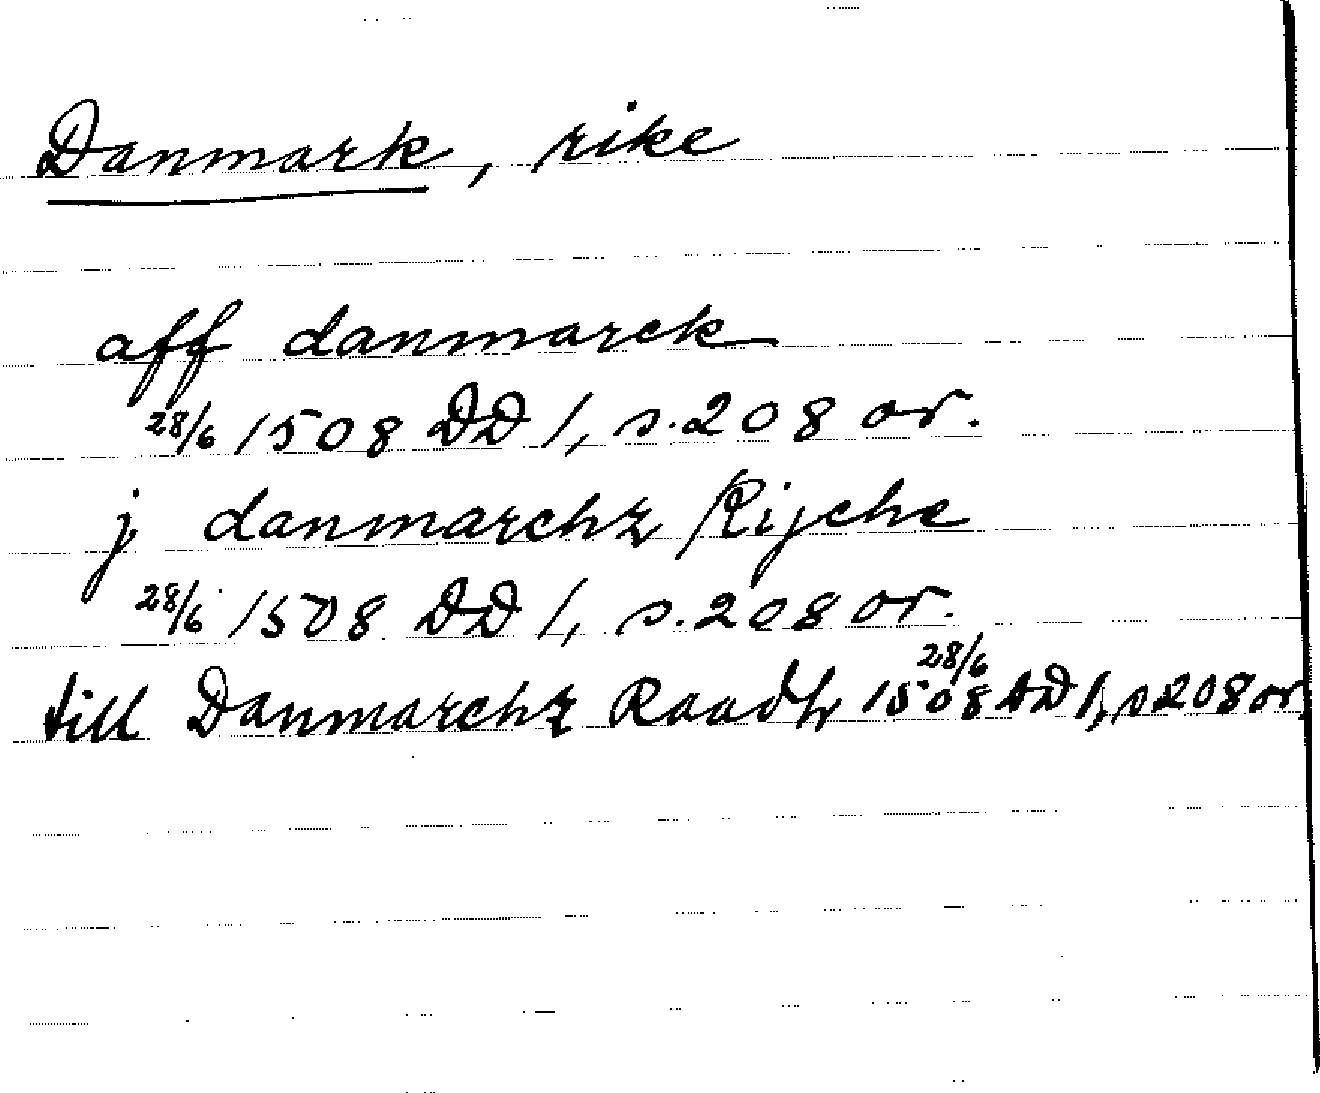 Danmark, rike
aff danmarck
28/6 1508 DD 1, s. 208 or.
j danmarchz Rijche
28/6 1508 DD 1, s. 208 or.
till Danmarchz Raadh 28/6 1508 DD 1, s 208 or.